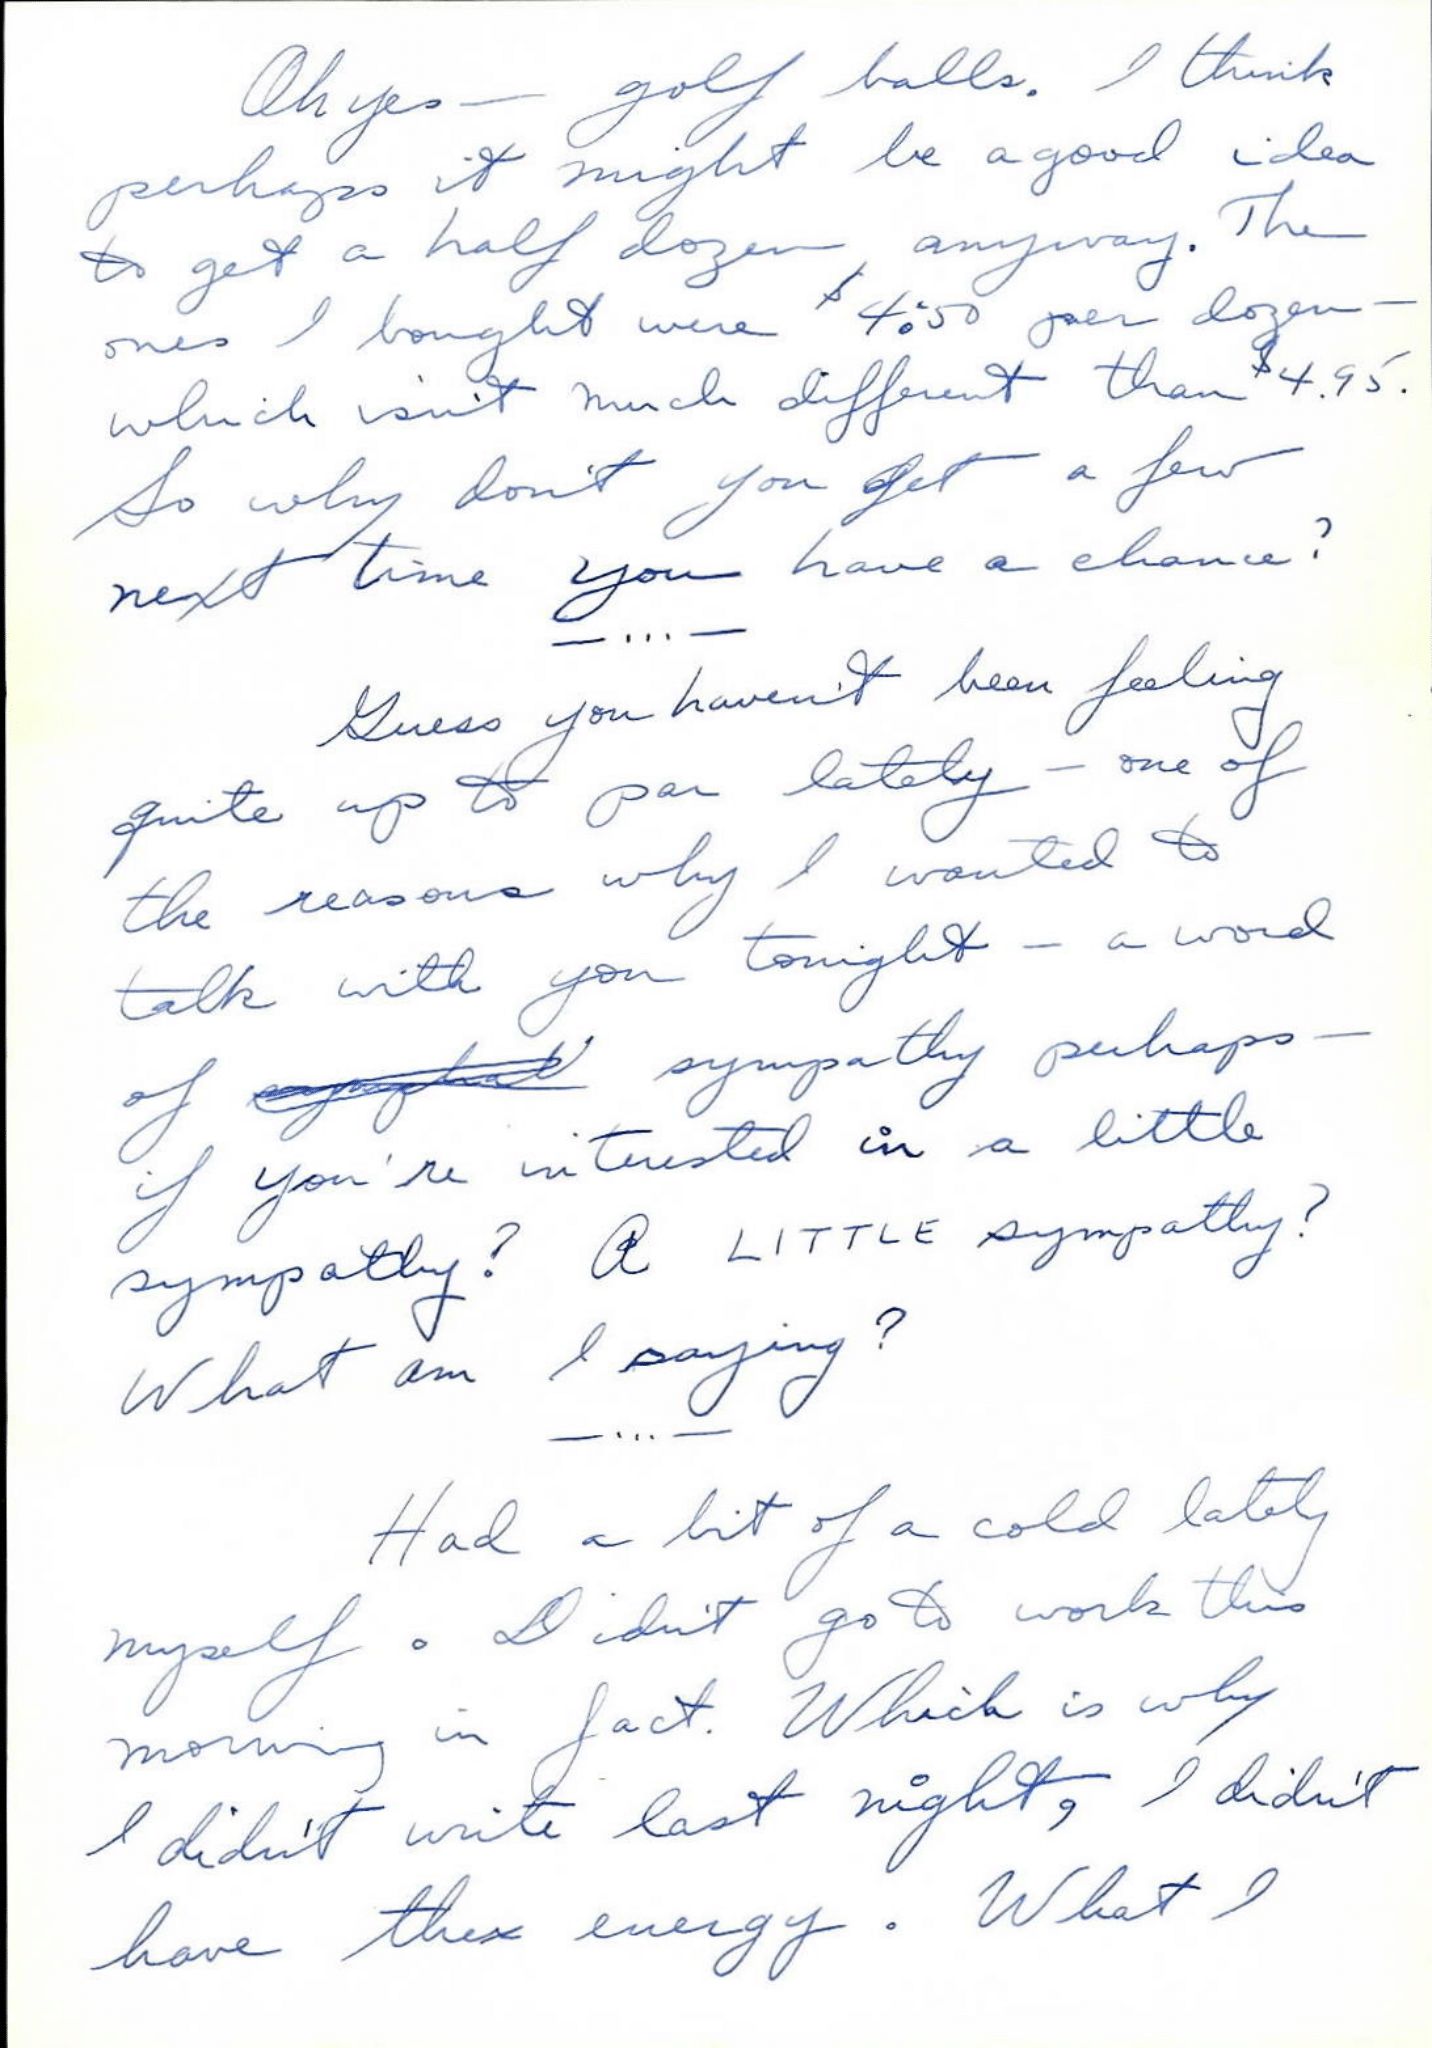 Oh yes — golf balls. I think
perhaps it might be a good idea
to get a half dozen, anyway. The
ones I bought were $4.50 per dozen —
which isn't much different than $4.95.
So why don't you get a few
next time you have a chance?
— ... —
Guess you haven't been feeling
quite up to par lately — one of
the reasons why I wanted to
talk with you tonight — a word
of sympathy perhaps —
if you're interested in a little
sympathy? A LITTLE sympathy?
What am I saying?
— ... —
Had a bit of a cold lately
myself. Didn't go to work this
morning in fact. Which is why
I didn't write last night, I didn't
have the energy. What I